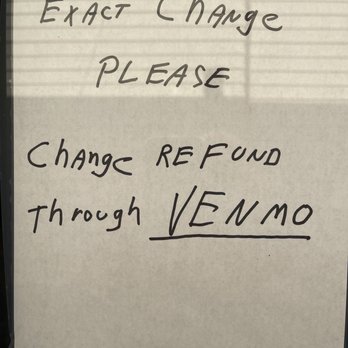 EXACT Change
PLEASE
Change REFUND
Through VENMO